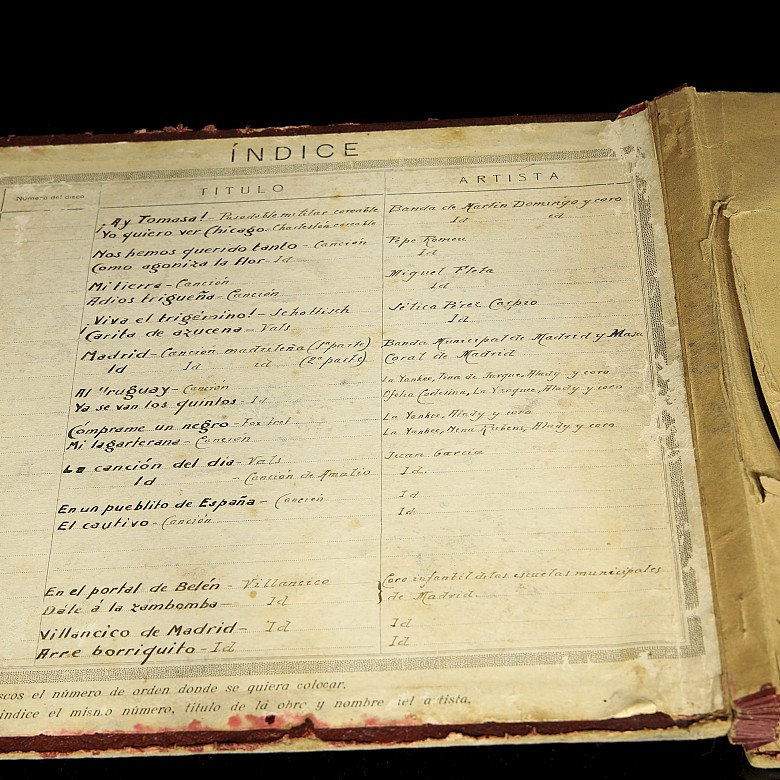 ÍNDICE
Número del disco
TITULO
ARTISTA
¡Ay Tomasa! - Pasodoble militar coreable Banda de Martín Domingo y coro
Yo quiero ver Chicago - Charleston coreable Id ed
Nos hemos querido tanto - Canción Pepe Romeu
Como agoniza la flor - Id Id
Mi tierra - Canción Miguel Fleta
Adios trigueña - Canción Id
¡Viva el trigémino! - Schottisch Sélica Pérez Carpio
Carita de azucena - Vals Id
Madrid - Canción madrileña (1ª parte) Banda Municipal de Madrid y Masa
Id Id ed (2ª parte) Coral de Madrid
Al Uruguay - Canción La Yankee, Tina de Jarque, Alady y coro
Ya se van los quintos - Id Ofelia Cortesina, La Yankee, Alady y coro
Cómprame un negro - Fox trot La Yankee, Alady y coro
Mi lagarterana - Canción La Yankee, Nena Rubens, Alady y coro
La canción del dia - Vals Juan García
Id - Canción de Amalio Id.
En un pueblito de España - Canción Id
El cautivo - Canción Id
En el portal de Belén - Villancico Coro infantil de las escuelas municipales
Dále á la zambomba - Id de Madrid.
Villancico de Madrid - Id Id
Arre borriquito - Id Id
scos el número de orden donde se quiera colocar.
indice el mismo número, titulo de la obra y nombre del artista.